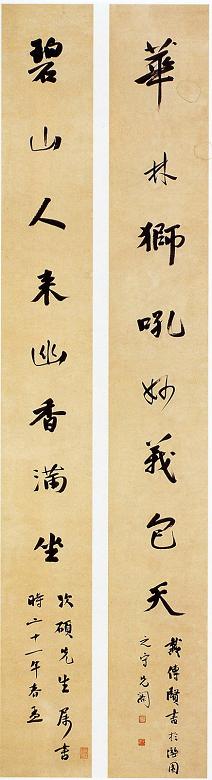 華林獅吼妙義包天
戴傳賢書於園
之守先閣
碧山人来幽香滿坐
次碩先生屬書
時二十一年春孟